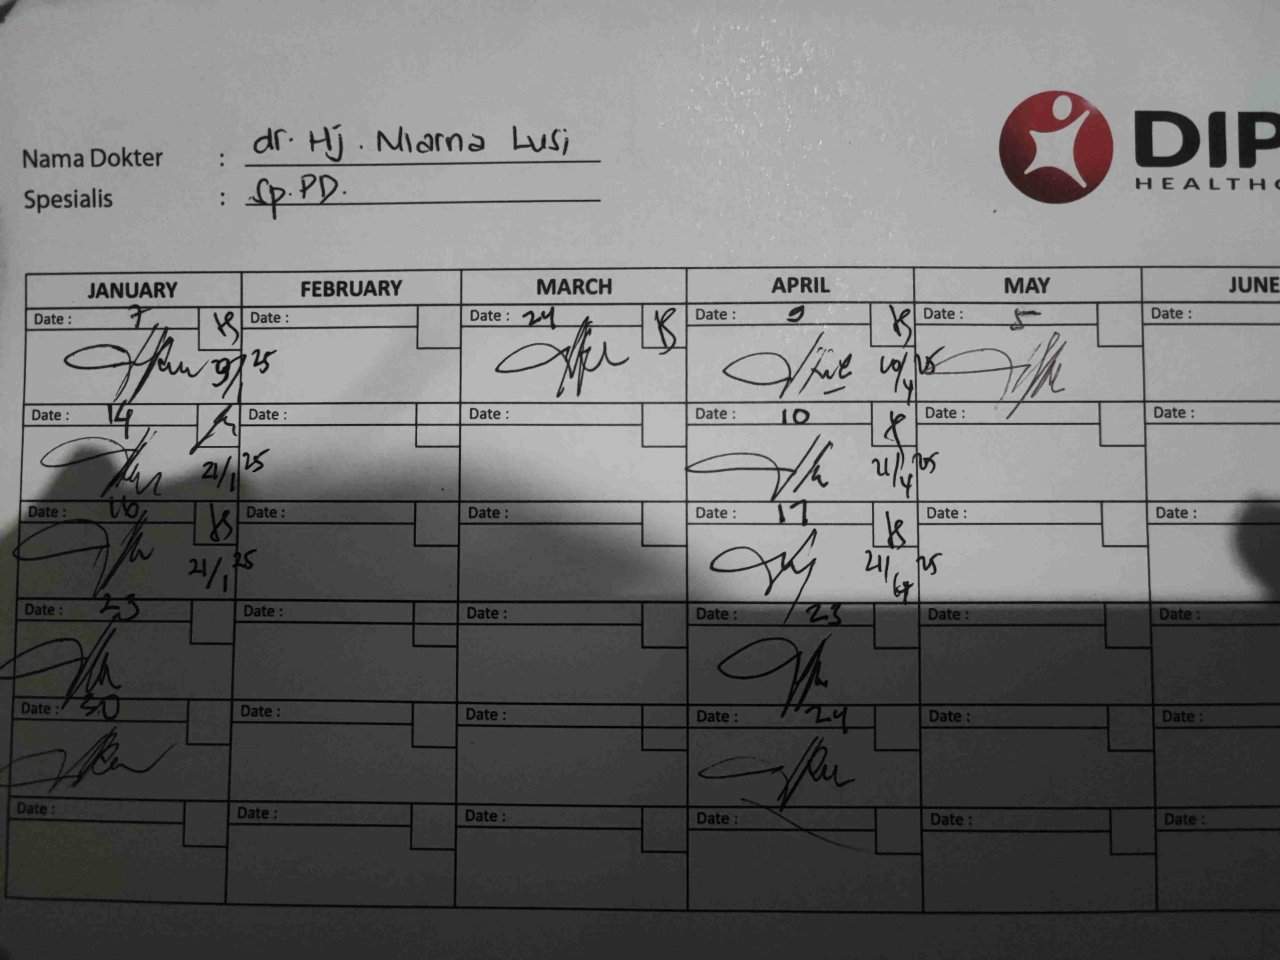 dr. Hj. Niarna Lusi
Nama Dokter :
Sp.PD.
Spesialis :
DIP
HEALTHC
JANUARY FEBRUARY MARCH APRIL MAY JUNE
Date : 7 Date : Date : 24 Date : 9 Date : 5 Date :
9/1 25 10/4 25
Date : 14 Date : Date : Date : 10 Date : Date :
21/1 25 21/4 25
Date : 16 Date : Date : Date : 17 Date : Date :
21/1 25 21/4 25
Date : 23 Date : Date : Date : 23 Date : Date :
Date : 30 Date : Date : Date : 24 Date : Date :
Date : Date : Date : Date : Date : Date :